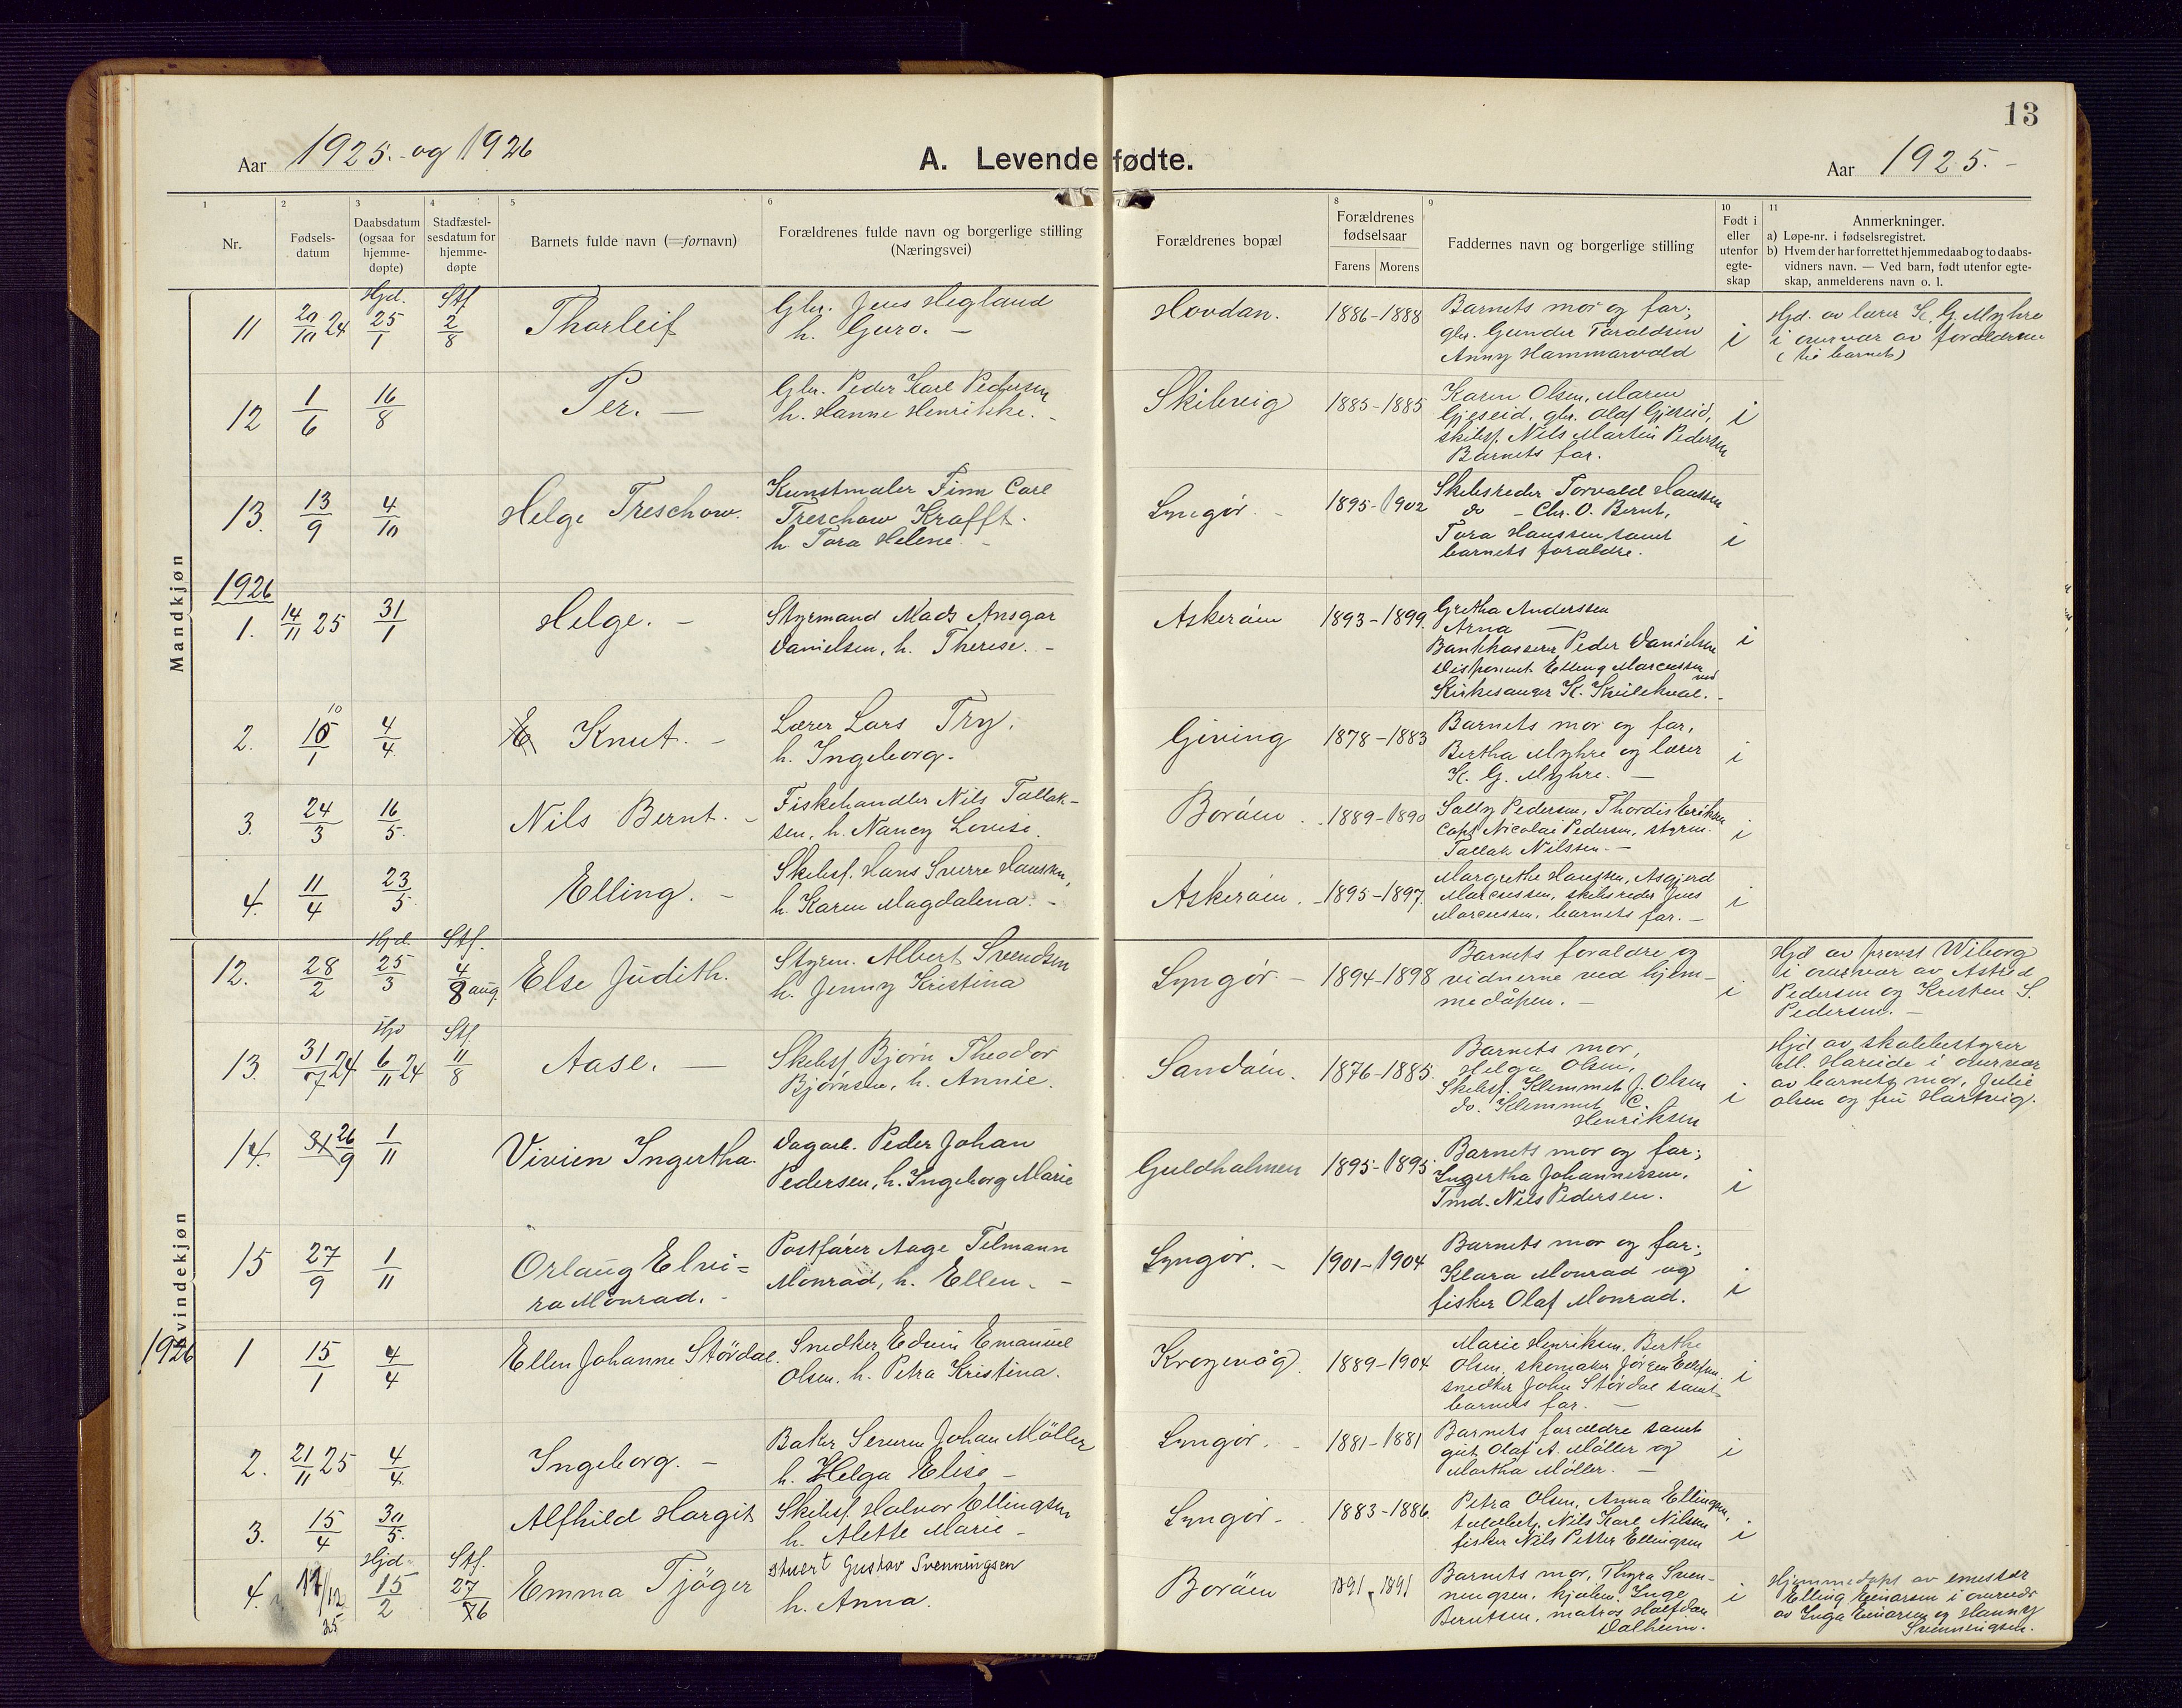 13
Aar 1925. og 1926
A. Levendefødte.
Aar 1925.-
1 2 3 4 5 6 7 8 9 10 11
Nr.
Fødsels-
datum
Daabsdatum
(ogsaa for
hjemme-
døpte)
Stadfæstel-
sesdatum for
hjemme-
døpte
Barnets fulde navn (=fornavn)
Forældrenes fulde navn og borgerlige stilling
(Næringsvei)
Forældrenes bopæl
Forældrenes
fødselsaar
Farens Morens
Faddernes navn og borgerlige stilling
Født i
eller
utenfor
egte-
skap
Anmerkninger.
a) Løpe-nr. i fødselsregistret.
b) Hvem der har forrettet hjemmedaab og to daabs-
vidners navn. — Ved barn, født utenfor egte-
skap, anmelderens navn o. l.
Mandkjøn
11 20/10 24 Hjd. 25/1 Stf 2/8 Thorleif
Gbr. Jens Hegland
h. Guro. -
Hovdan. 1886-1888
Barnets mor og far,
gbr. Gunder Taraldsen
Anny Hammarvold
i
Hjd. av lærer K. G. Myhre
i overvær av foreldrene
(til barnet)
12 1/6 16/8 Per. -
Gbr. Peder Karl Pedersen
h. Hanne Henrikke. -
Skibvig 1885-1885
Karen Olsen, Maren
Gjeseid, gbr. Olaf Gjeseid,
skibsf. Nils Martin Pedersen
Barnets far.
i
13. 13/9 4/10 Helge Treschow.
Kunstmaler Finn Carl
Treschow Krafft.
h. Tora Helene. -
Lyngör. - 1895-1902
Skibsreder Torvald Hanssen
do - Chr. O. Bernt,
Tora Hanssen samt
barnets foraldre.
i
1926
1. 14/11 25 31/1 Helge. -
Styrmand Mads Ansgar
Danielsen, h. Therese. -
Askeröien 1893-1899.
Gretha Anderssen
Arna —
Bankkasserer Peder Danielsen
Disponent Elling Marcussen
Kirkesanger K.
i
2. 10/1 4/4 Knut. -
Lærer Lars Try.
h. Ingeborg.
Giving 1878-1883
Barnets mor og far,
Bertha Myhre og lærer
K. G. Myhre. —
i
3. 24/3 16/5 Nils Bernt. -
Fiskehandler Nils Tallak-
sen, h. Nancy Louise.
Boröien. 1889-1890
Sally Pedersen, Thordis Eriksen
Capt Nicolai Pedersen, styrm.
Tallak Nilssen. -
i
4. 11/4 23/5 Elling. -
Skibsf. Hans Sverre Hanssen,
h. Karen Magdalena. -
Askeröien. 1895-1897.
Margrethe Hanssen, Asgjerd
Marcussen, skibsreder Jens
Marcussen, barnets far. -
i
Kvindekjøn
12. 28/2 Hjd. 25/3 Stf. 4/8 aug. Else Judith.
Styrm. Albert Svendsen
h. Jenny Kristina
Lyngör. - 1894-1898
Barnets foraldre og
vidnerne ved hjem-
medåpen. -
i
Hjd av provst Wiborg
i overvær av Astrid
Pedersen og Kristen S.
Pedersen. -
13. 31/7 24 Hjd 6/11 24 Stf. 11/8 Aase. -
Skibsf Bjørn Theodor
Bjørnsen, h. Annie.
Sandöien. 1876-1885.
Barnets mor,
Helga Olsen,
Skibsf. Klemmet J. Olsen
do. Klemmet C.
Henriksen
i
Hjd av skolebestyrer
M. Hareide i overvær
av barnets mor, Julie
Olsen og fru Hartvig.
14. 26/9 1/11 Vivien Ingertha.
Dagarb. Peder Johan
Pedersen, h. Ingeborg Marie
Guldholmen 1895-1895
Barnets mor og far,
Ingertha Johannessen,
Tmd. Nils Pedersen.
i
15 27/9 1/11 Orlaug Elvi=
ra Monrad. -
Postfører Aage Tilmann
Monrad, h. Ellen. -
Lyngör. - 1901-1904
Barnets mor og far,
Klara Monrad og
fisker Olaf Monrad.
i
1926
1 15/1 4/4 Ellen Johanne Stördal.
Snedker Edvin Emanuel
Olsen. h. Petra Kristina.
Krogevåg 1889-1904
Marie Henriksen, Berthe
Olsen, skomaker Jörgen
snedker John Stördal samt
barnets far. -
i
2. 21/11 25 4/4 Ingeborg. -
Baker Severin Johan Möller
h. Helga Elise -
Lyngör. 1881-1881
Barnets foraldre samt
gut Olaf A. Möller og
Martha Möller. -
i
3. 15/4 30/5 Alfhild Hargit
Skibsf. Halvor Ellingsen
h. Alette Marie -
Lyngör - 1883-1886.
Petra Olsen, Anna Ellingsen,
Nils Karl Nilsen
fisker Nils Petter Ellingsen
i
4. 17/12 25 Hjd. 15/2 Stf. 27/6 Emma Tjöger
stuert Gustav Svenningsen
h. Anna.
Boröien 1891-1891
Barnets mor, Thyra Sven-
ningsen, Inge
Berntsen, matros Halfdan
Dalheim.
i
Hjemmedöpt av
Elling Einarsen i overvær
av Inga Einarsen og Hanny
Svenningsen.